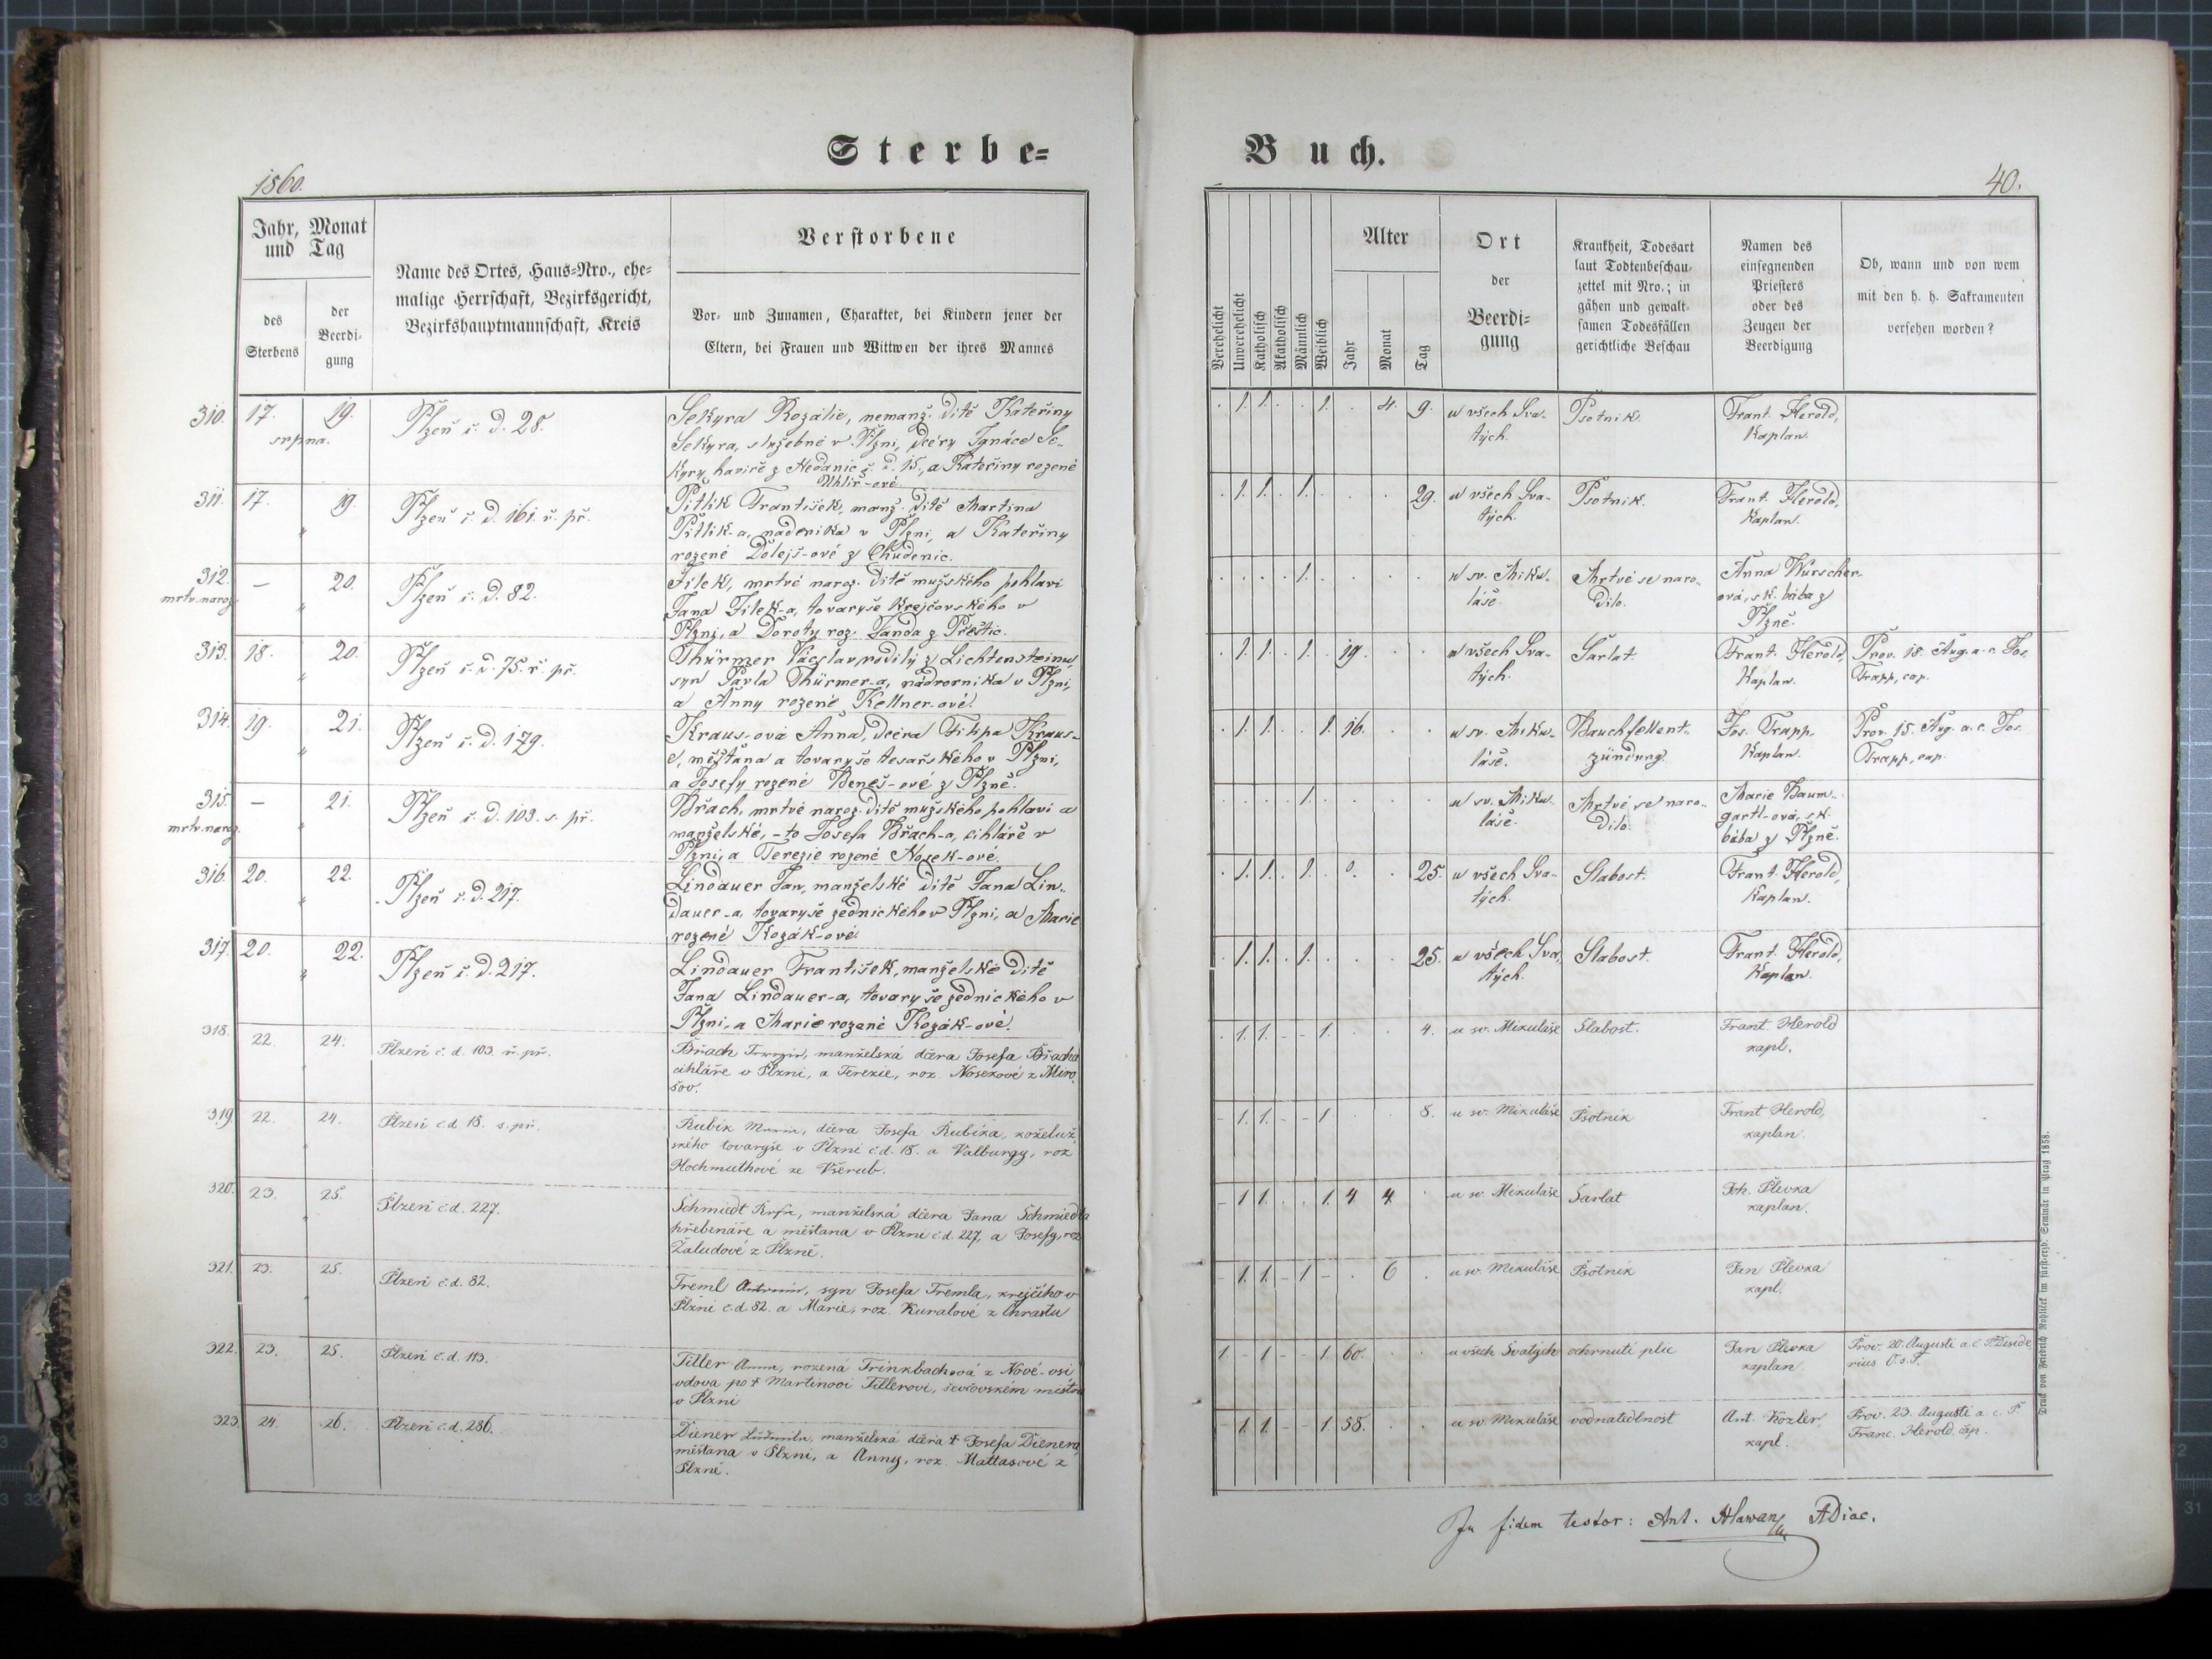 Sterbe-
Buch.
1860.
40.
Jahr, Monat
und Tag
des
Sterbens
der
Beerdi-
gung
Name des Ortes, Haus-Nro., ehe-
malige Herrschaft, Bezirksgericht,
Bezirkshauptmannschaft, Kreis
Verstorbene
Vor- und Zunamen, Charakter, bei Kindern jener der
Eltern, bei Frauen und Wittwen der ihres Mannes
Verehelicht
Unverehelicht
Katholisch
Akatholisch
Männlich
Weiblich
Alter
Jahr
Monat
Tag
Ort
der
Beerdi-
gung
Krankheit, Todesart
laut Todtenbeschau-
zettel mit Nro.; in
gähen und gewalt-
samen Todesfällen
gerichtliche Beschau
Namen des
einsegnenden
Priesters
oder des
Zeugen der
Beerdigung
Ob, wann und von wem
mit den h. h. Sakramenten
versehen worden?
310. 17. 19.
srpna.
Plzeň č. d. 28.
Sekyra Rozalie, nemanž. dítě Kateřiny
Sekyra, služebné v Plzni, dcery Ignáce Se-
kyry, havíře z Nedanic č. d. 15, a Kateřiny rozené
Uhlíř-ové.
. 1. 1. . . 1. . 4. 9.
u všech Sva-
tých.
Psotník.
Frant. Herold,
Kaplan.
311. 17. 19.
"
Plzeň č. d. 161. ř. př.
Pitlik František, manž. dítě Martina
Pitlik-a, nádeníka v Plzni, a Kateřiny
rozené Dolejš-ové z Chudenic.
. 1. 1. . 1. . . . 29.
u všech Sva-
tých.
Psotník.
Frant. Herold,
Kaplan.
312. — 20.
mrtv. naroz.
"
Plzeň č. d. 82.
Jílek, mrtvé naroz. dítě mužského pohlaví
Jana Jílek-a, tovaryše krejčovského v
Plzni, a Doroty roz. Janda z Přeštic.
. . . . 1. . . . .
u sv. Miku-
láše.
Mrtvé se naro-
dilo.
Anna Wurscher-
ová, sk. bába z
Plzně.
313. 18. 20.
"
Plzeň č. d. 75. ř. př.
Thürmer Václav, rodilý z Lichtensteinu,
syn Pavla Thürmer-a, nádvorníka v Plzni,
a Anny rozené Kellner-ové.
. 1. 1. . 1. . 19. . .
u všech Sva-
tých.
Šarlat.
Frant. Herold,
Kaplan.
Prov. 18. Aug. a. c. Jos.
Trapp, cap.
314. 19. 21.
"
Plzeň č. d. 179.
Kraus-ová Anna, dcera Filipa Kraus-
e, měšťana a tovaryše tesařského v Plzni,
a Josefy rozené Beneš-ové z Plzně.
. 1. 1. . . 1. 16. . .
u sv. Miku-
láše.
Bauchfellent-
zündung.
Jos. Trapp,
Kaplan.
Prov. 15. Aug. a. c. Jos.
Trapp, cap.
315. — 21.
mrtv. naroz.
"
Plzeň č. d. 103. s. př.
Břach, mrtvé naroz. dítě mužského pohlaví a
manželské, -to Josefa Břach-a, cihláře v
Plzni, a Terezie rozené Nosek-ové.
. . . . 1. . . . .
u sv. Miku-
láše.
Mrtvé se naro-
dilo.
Marie Baum-
gartl-ová, sk.
bába z Plzně.
316. 20. 22.
"
Plzeň č. d. 217.
Lindauer Jan, manželské dítě Jana Lin-
dauer-a, tovaryše zednického v Plzni, a Marie
rozené Kozák-ové.
. 1. 1. . 1. . 0. . 25.
u všech Sva-
tých.
Slabost.
Frant. Herold,
Kaplan.
317. 20. 22.
"
Plzeň č. d. 217.
Lindauer František, manželské dítě
Jana Lindauer-a, tovaryše zednického v
Plzni, a Marie rozené Kozák-ové.
. 1. 1. . 1. . . . 25.
u všech Sva-
tých.
Slabost.
Frant. Herold,
Kaplan.
318. 22. 24.
Plzeň č. d. 103. ř. př.
Břach Terezie, manželská dcera Josefa Břacha
cihláře v Plzni, a Terezie, roz. Nosekové z Miro-
šov.
. 1. 1. - - 1. . . 4.
u sv. Mikuláše
Slabost.
Frant. Herold
kapl.
319. 22. 24.
"
Plzeň č. d. 18. s. př.
Rubik Marie, dcera Josefa Rubika, koželuž-
ského tovaryše v Plzni č. d. 18. a Valburgy, roz.
Hochmuthové ze Všerub.
- 1. 1. - - 1 . . 8.
u sv. Mikuláše
Psotník
Frant Herold,
kaplan.
320. 23. 25.
"
Plzeň č. d. 227.
Schmiedt manželská dcera Jana Schmiedta
hřebenáře a měšťana v Plzni č. d. 227, a Josefy, roz.
Žaludové z Plzně.
- 1 1. . . 1. 4 4 .
u sv. Mikuláše
Šarlat
Joh. Plevka
kaplan.
321. 23. 25.
"
Plzeň č. d. 82.
Treml Antonín, syn Josefa Tremla, krejčího v
Plzni č. d. 82. a Marie, roz. Kuralové z Chrastu
- 1. 1. - 1 - . 6 .
u sv. Mikuláše
Psotník
Jan Plevka
kapl.
322. 23. 25.
Plzeň č. d. 113.
Tiller Anna, rozená Trinkbachová z Nové-vsi
vdova po † Martinovi Tillerovi, ševcovském mistru
v Plzni
1. - 1 - - 1 60. . .
u všech Svatých
ochrnutí plic
Jan Plevka
kaplan.
Prov. 20. Augusti a. c. P. Deside
rius O. s. F.
323. 24. 26.
Plzeň č. d. 286.
Diener Ludmila, manželská dcera † Josefa Dienera
měšťana v Plzni, a Anny, roz. Mattasové z
Plzně.
- 1. 1. - - 1 58. . .
u sv. Mikuláše
vodnatedlnost
Ant. Kozler,
kapl.
Prov. 23. Augusti a. c. P.
Franc. Herold. cap.
Druck von Friedrich Rohlíček im fürsterzb. Seminär in Prag 1858.
In fidem testor: Ant. Hlawan ADiac.